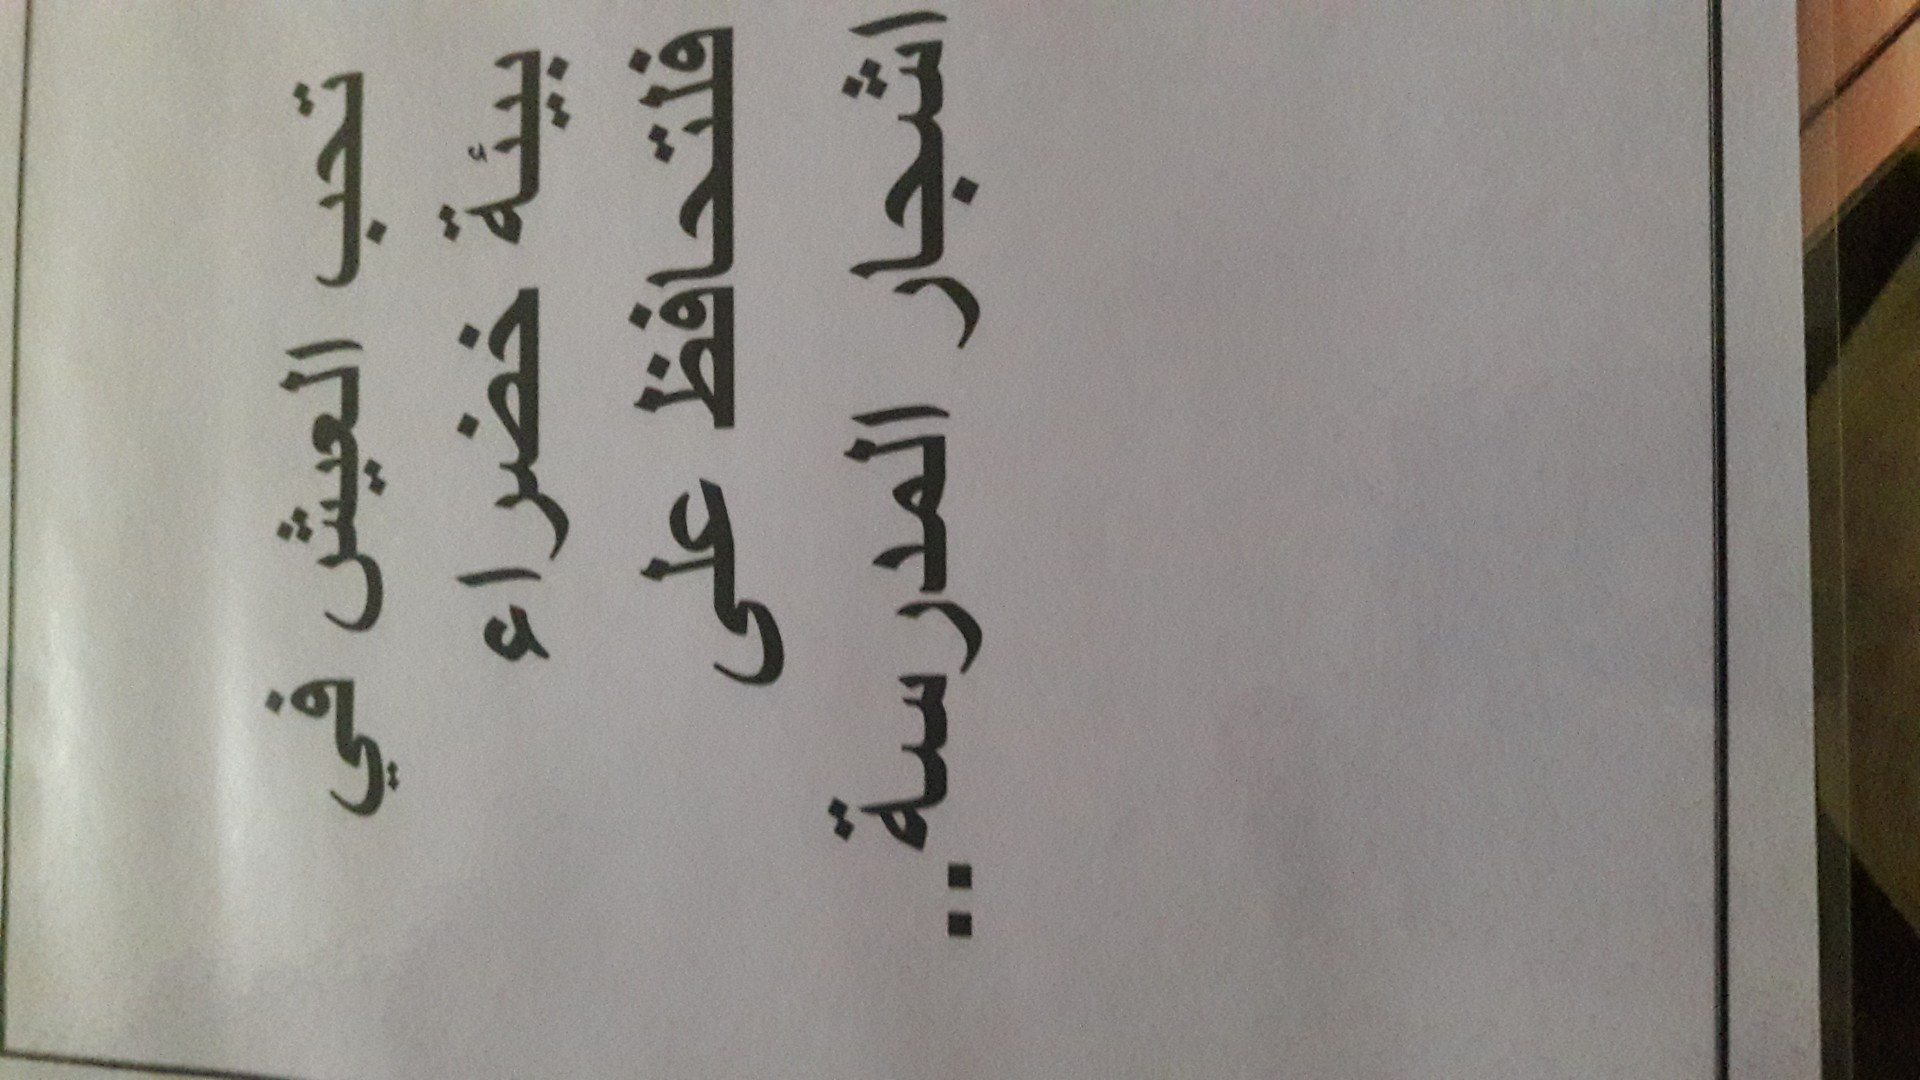 تحب العيش في
بيئة خضراء
فلتحافظ على
اشجار المدرسة..